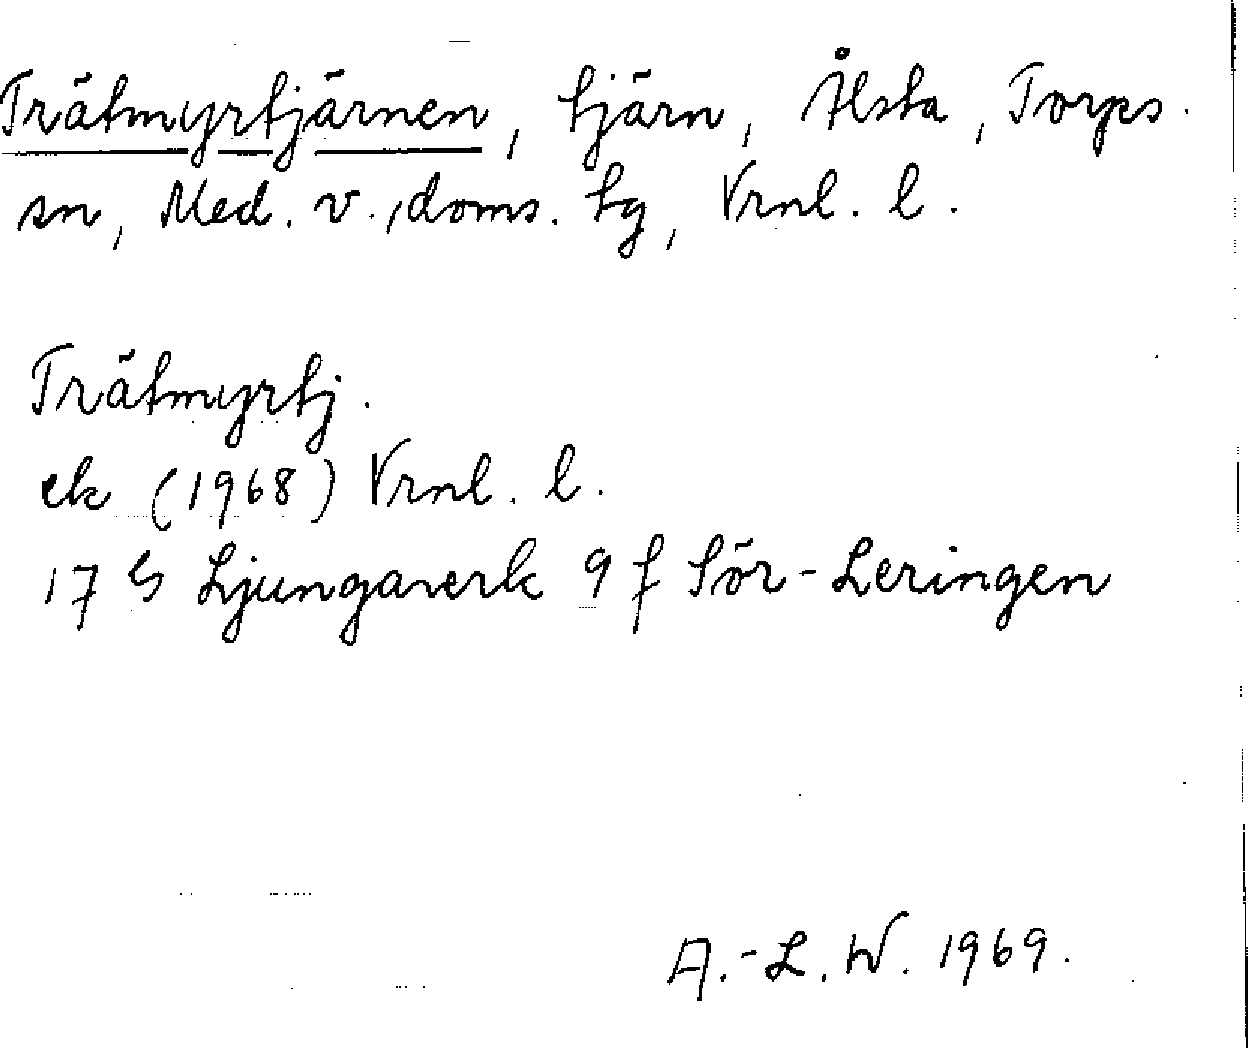 Trätmyrtjärnen, tjärn, Ålsta, Torps
sn, Med. v., doms. tg, Vrnl. l.
Trätmyrtj.
ek (1968) Vrnl. l.
17 G Ljungaverk 9 f Sör-Leringen
A.-L. W. 1969.